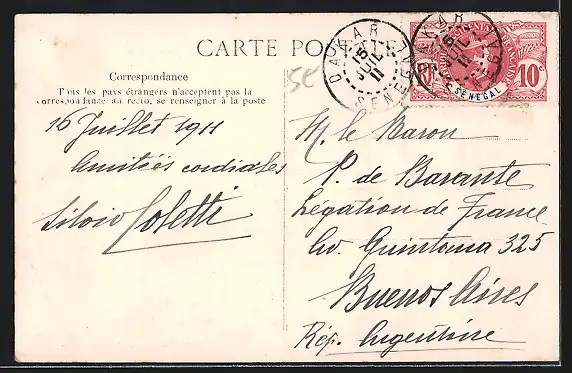 CARTE POSTALE
DAKAR
15
JUIL
11
SENEGAL
DAKAR
15
JUIL
11
SENEGAL
10c
5c
Correspondance
Tous les pays étrangers n'acceptent pas la
correspondance au recto, se renseigner à la poste
16 Juillet 1911
Amitiés cordiales
Silvio Coletti
M. le Baron
P. de Barante
Légation de France
Av. Quintana 325
Buenos Aires
Rép. Argentine